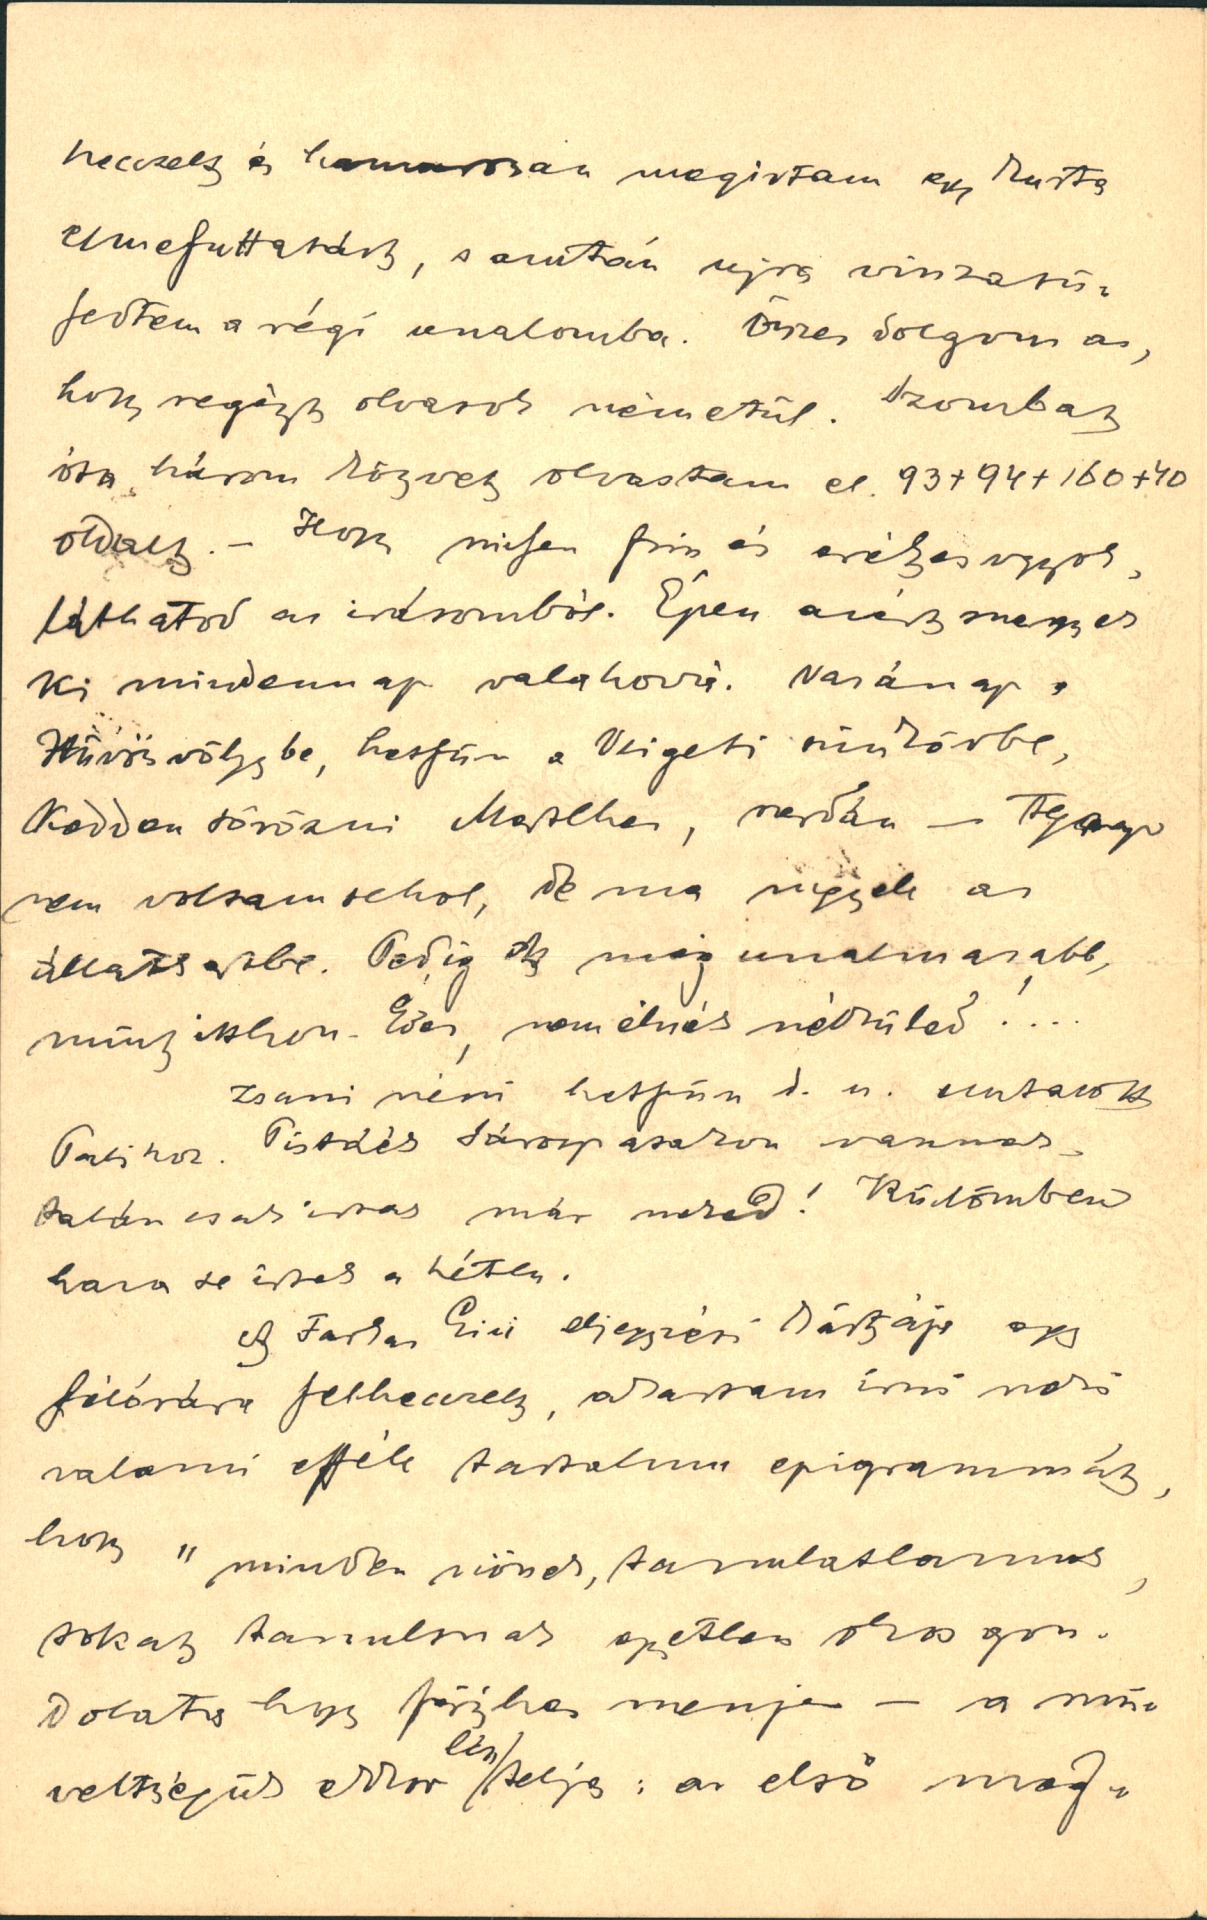 heccelt és hamarosan megirtam egy kurta
elmefuttatást, s azután ujra visszasü-
jedtem a régi unalomba. Összes dolgom az,
hogy regényt olvasok németül. Szombat
óta három könyvet olvastam el. 93+94+160+40
oldalt. – Hogy milyen friss és értékes vagyok,
láthatod az irásomból. Épen azért megyek
ki mindennap valahová. Vasárnap a
Hüvösvölgybe, hetfün a Szigeti
Kedden sörözni, szerdán – Tegnap
nem voltam sehol, de ma megyek az
állatkertbe. Pedig ott még unalmasabb,
mint itthon. Édes, nem élnék nélküled! ....
Zsani néni hetfün d. u. elutazott
Palihoz. Pistáék Sárospatakon vannak,
talán csak irtak már neked! Külömben
haza se irtak a héten.
A Farkas eljegyzési kártyája egy
félórára felheccelt, akartam irni neki
valami efféle tartalmu epigrammát,
hogy "minden nőnek, tanulatlannak,
sokat tanultnak egyetlen okos gon-
dolata hogy férjhez menjen – a mü-
veltségük ekkor lesz teljes: az első meg-